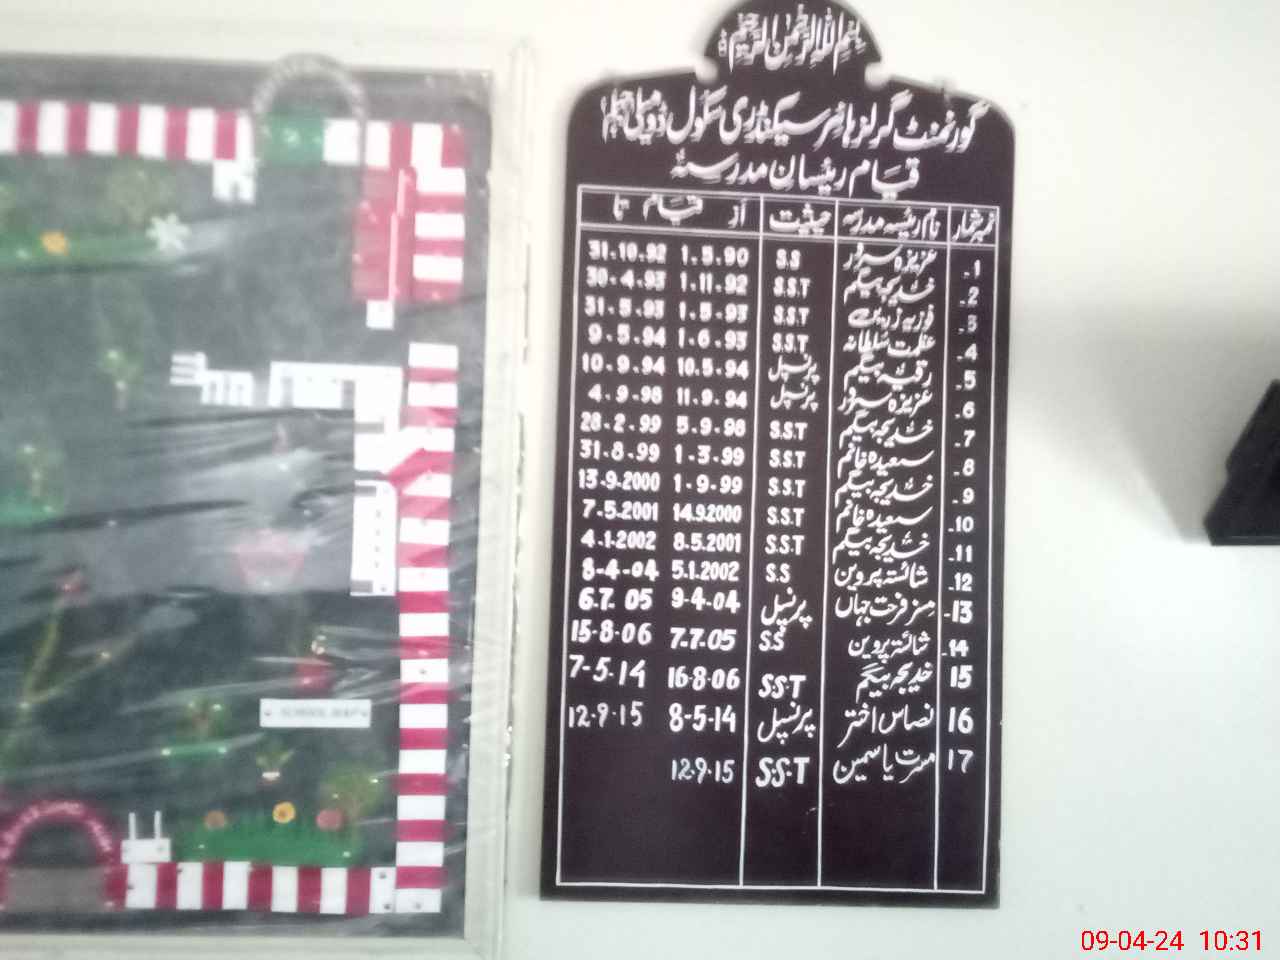 بسم اللہ الرحمٰن الرحیم
گورنمنٹ گرلز ہائر سیکنڈری سکول ڈومیلی جہلم
قیام رئیسان مدرسہ
نمبر شمار نام رئیسہ مدرسہ حیثیت از قیام تا
1- عزیزہ سرور S.S 1.5.90 31.10.92
2- خدیجہ بیگم S.S.T 1.11.92 30.4.93
3- فوزیہ زریں S.S.T 1.5.93 31.5.93
4- عظمت سلطانہ S.S.T 1.6.93 9.5.94
5- رقیہ بیگم پرنسپل 10.5.94 10.9.94
6- عزیزہ سرور پرنسپل 11.9.94 4.9.98
7- خدیجہ بیگم S.S.T 5.9.98 28.2.99
8- سعیدہ خانم S.S.T 1.3.99 31.8.99
9- خدیجہ بیگم S.S.T 1.9.99 13.9.2000
10- سعیدہ خانم S.S.T 14.9.2000 7.5.2001
11- خدیجہ بیگم S.S.T 8.5.2001 4.1.2002
12- شائستہ پروین S.S 5.1.2002 8-4-04
13- مسز فرحت جہاں پرنسپل 9-4-04 6.7.05
14- شائستہ پروین S.S 7.7.05 15-8-06
15 خدیجہ بیگم S.S.T 16-8-06 7-5-14
16 اختر پرنسپل 8-5-14 12-9-15
17 مسرت یاسمین S.S.T 12.9.15
SCHOOL MAP
09-04-24 10:31